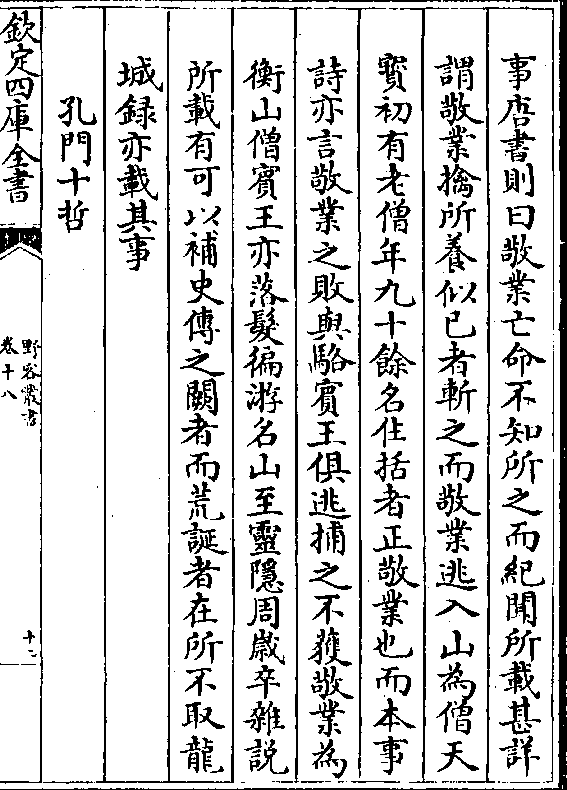 事唐書則曰敬業亡命不知所之而紀聞所載甚詳
謂敬業擒所養似已者斬之而敬業逃入山為僧天
寳初有老僧年九十餘名住括者正敬業也而本事
詩亦言敬業之敗與駱賓王俱逃捕之不獲敬業為
衡山僧賓王亦落髮徧游名山至靈隱周歲卒雜説
所載有可以補史傳之闕者而荒誕者在所不取龍
城録亦載其事
孔門十哲
欽定四庫全書
野客叢書
卷十八
十二